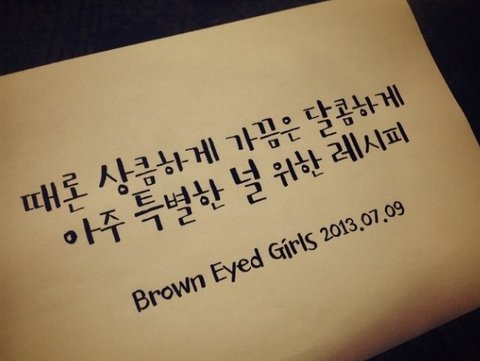 때론 상큼하게 가끔은 달콤하게
아주 특별한 널 위한 레시피
Brown Eyed Girls 2013.07.09